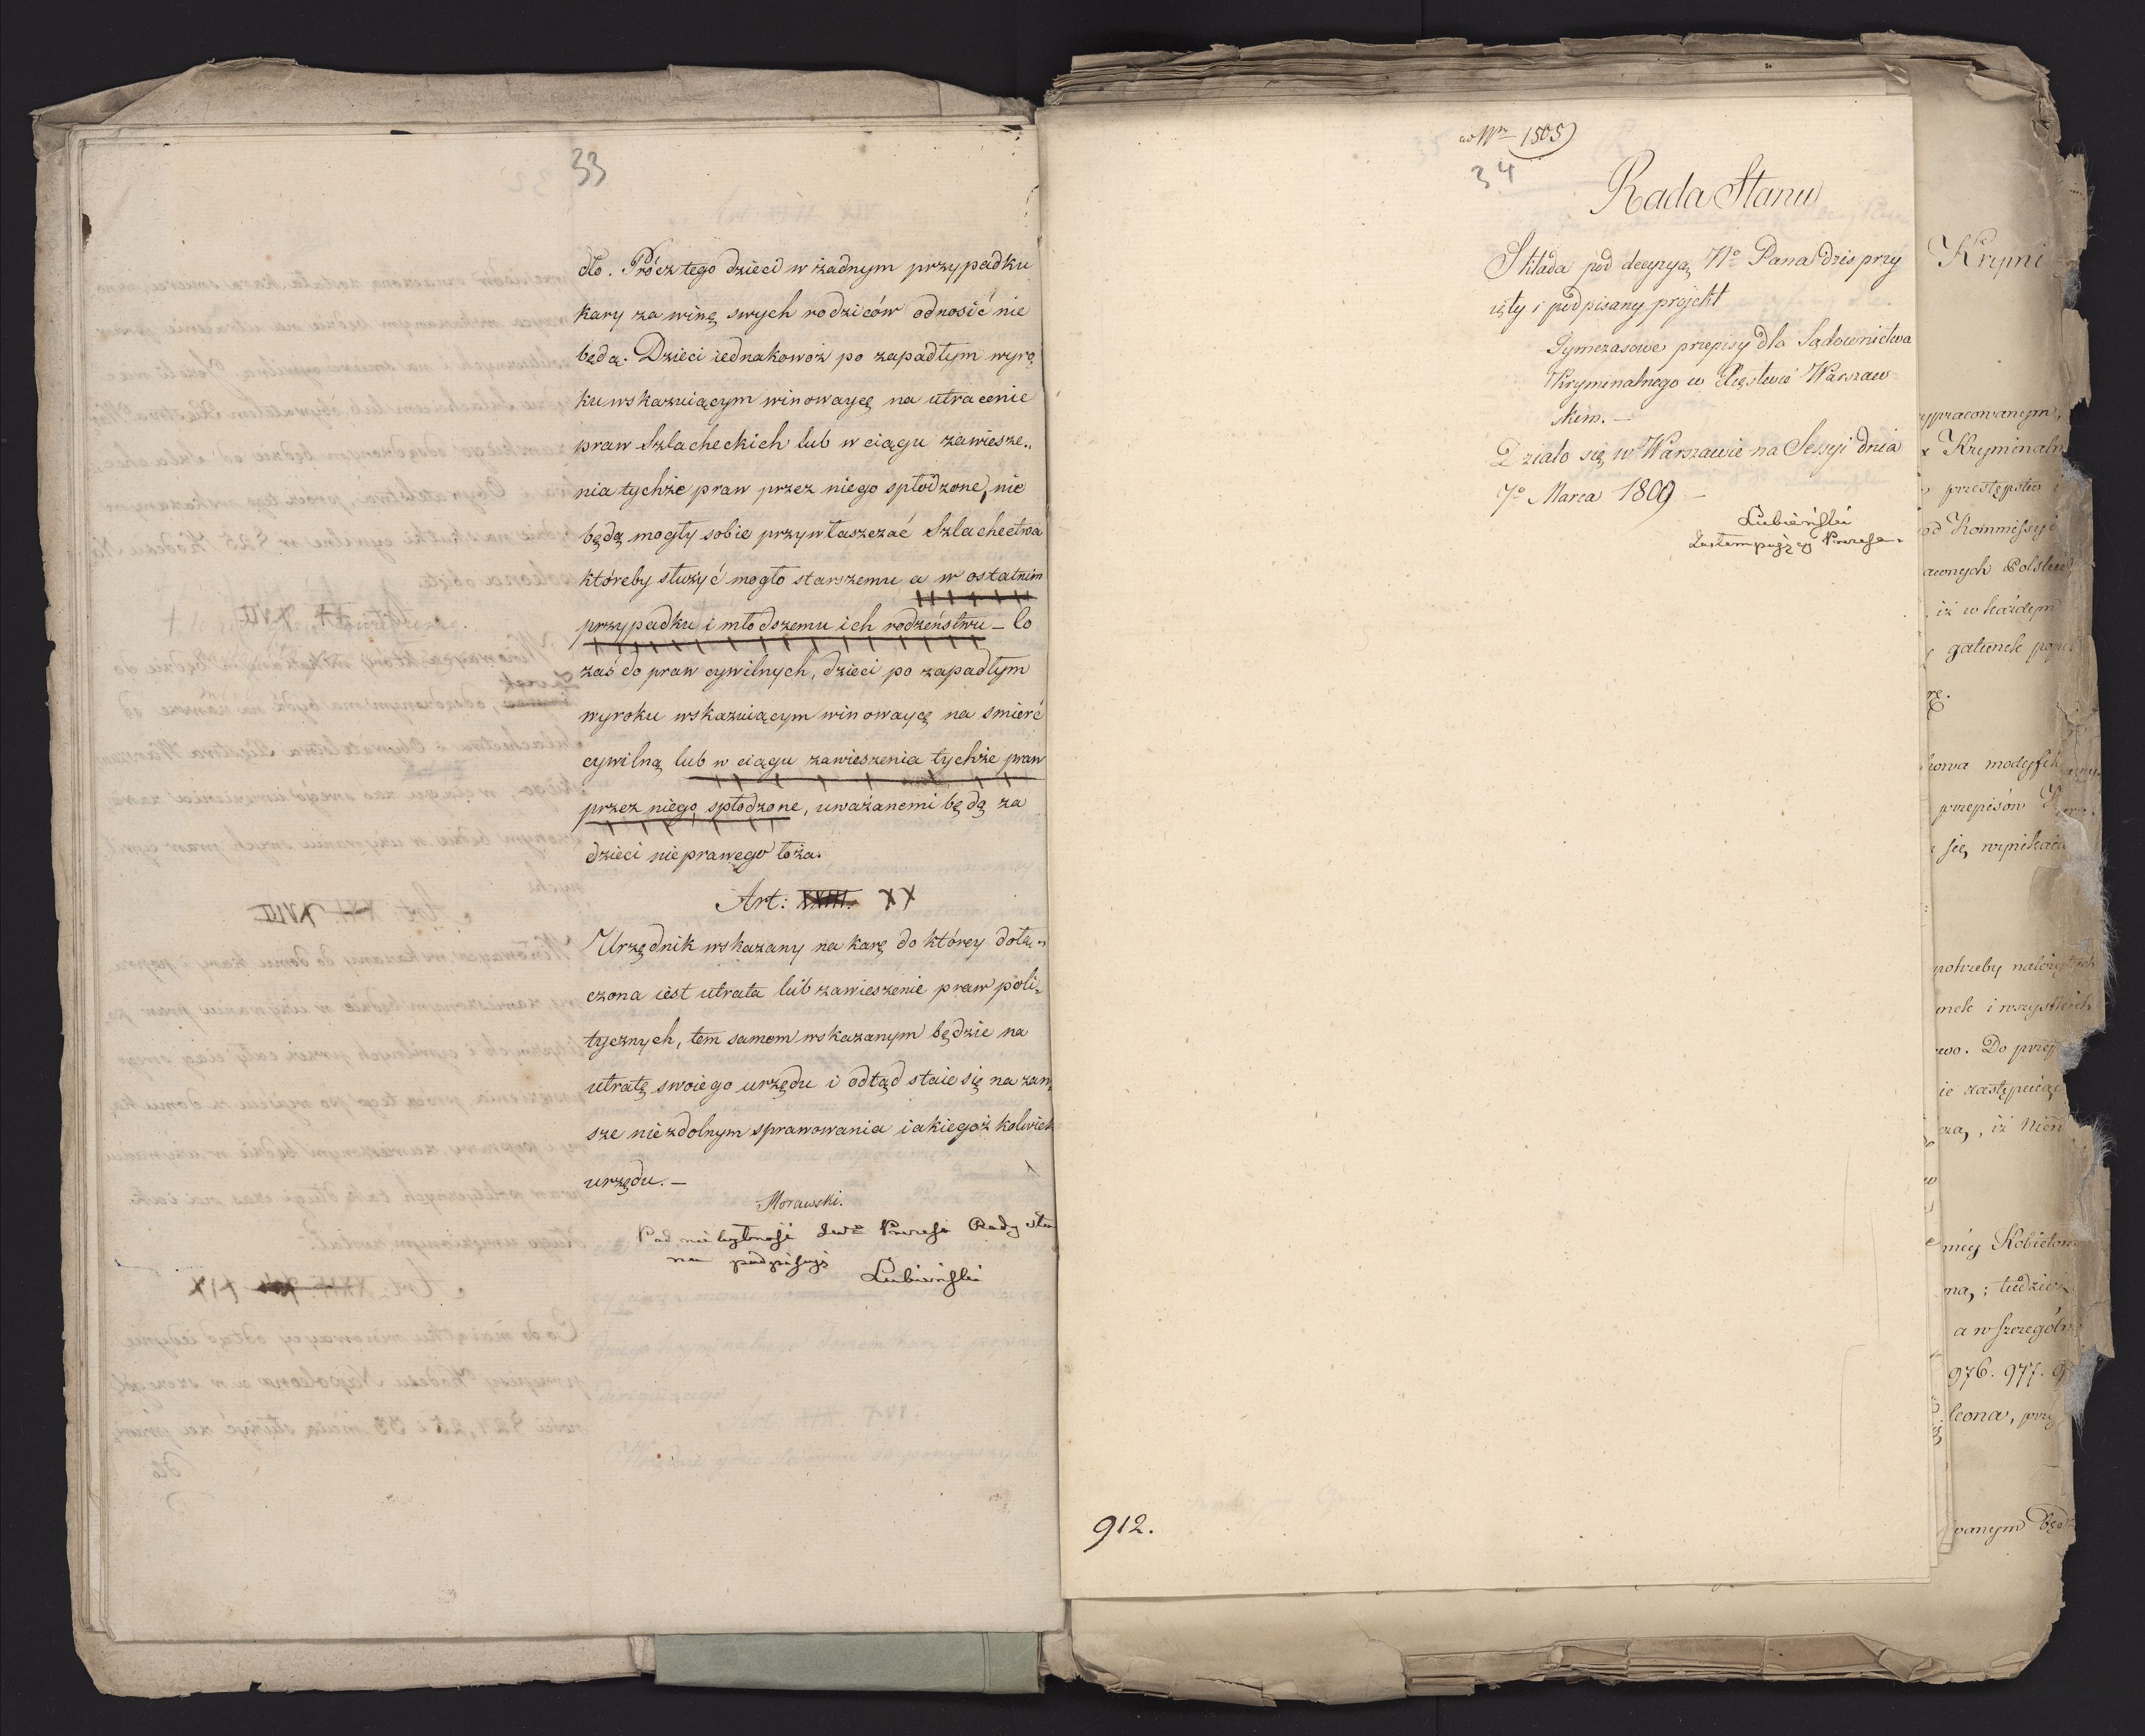 33
dło. Prócz tego dzieci w żadnym przypadku
kary za winę swych rodziców odnosić nie
będą. Dzieci iednakowoż po zapadłym wyro
ku wskazuiącym winowaycę na utracenie
praw Szlacheckich lub w ciągu zawiesze„
nia tychże praw przez niego spłodzone, nie
będą mogły sobie przywłaszczać Szlachectwa
któreby służyć mogło starszemu a w ostatnim
przypadku i młodszemu ich rodzeństwu – Co
zaś do praw cywilnych, dzieci po zapadłym
wyroku wskazuiącym winowaycę na smierć
cywilną lub w ciągu zawieszenia tychże praw
przez niego spłodzone, uważanemi będą za
dzieci nieprawego łoża.
Art: XXIII. XX
Urzędnik wskazany na karę do którey dołą„
czona iest utrata lub zawieszenie praw poli„
tycznych, tem samem wskazanym będzie na
utratę swoiego urzędu i odtąd staie się na zaw„
sze niezdolnym sprawowania iakiegoż kolwiek
urzędu. –
Morawski.
Pod niebytność Prezesa Rady Sta
nu podpisuję
Lubieński
ad Nrm 1505
34
Rada Stanu
Składa pod decyzyą Nº Pana dzis przy
ięty i podpisany projekt
Tymczasowe przepisy dla Sądownictwa
Kryminalnego w Xięstwie Warszaw
skim. –
Działo się w Warszawie na Sessyi dnia
7º Marca 1809 –
Lubieński
Zastempuiący Prezesa
912.
Krymi
ypracowanym,
Kryminaln
przestępstw
od Kommissyi
iż w każdym
gatunek
przepisów
się wynika
potrzeby
i wszystkich
Do
ie zastępuiąc
Kobietom
a w szczególn
976. 977. 9
leona,
wanym będ